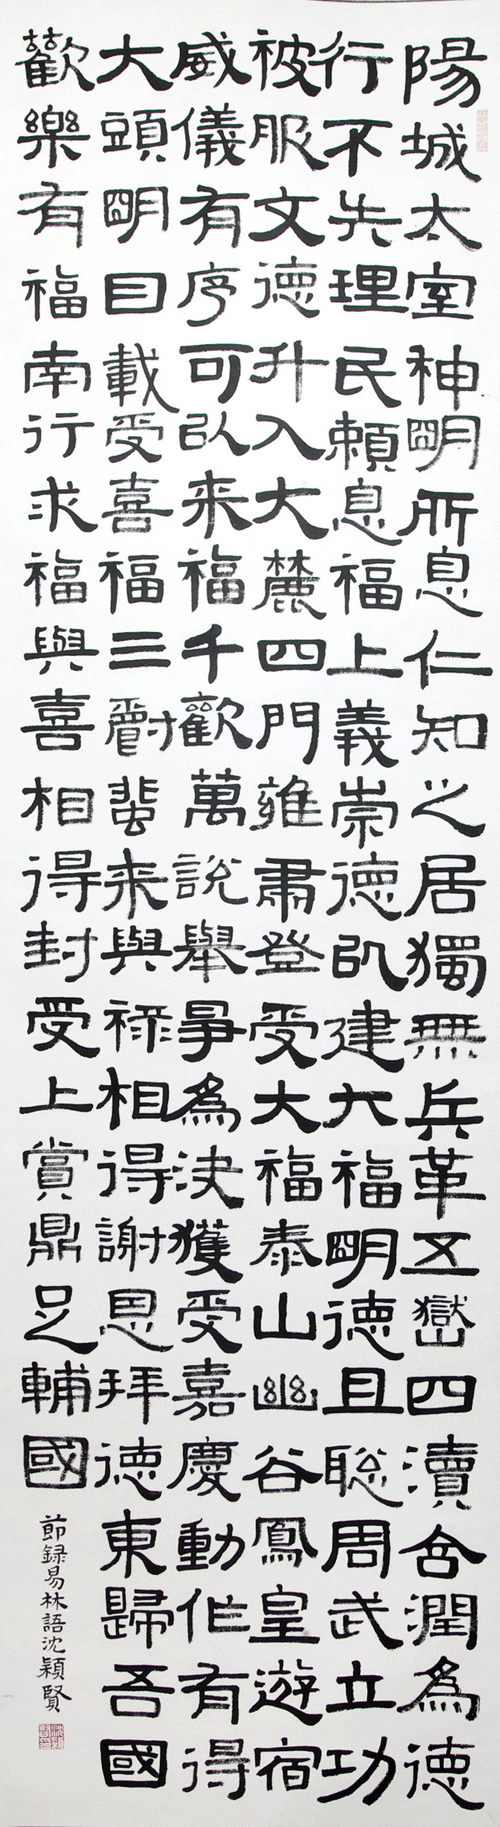 陽城太室神明所息仁知之居獨無兵革五嶽四瀆含潤為德
行不失理民賴息福上義崇德以建大福明德且聡周武立功
被服文德升入大麓四門雍肅登受大福泰山幽谷鳳皇遊宿
威儀有序可以来福千歡萬說舉事為決獲受嘉慶動作有得
大頭明目載受喜福三爵蜚来與祿相得謝恩拜德東歸吾國
歡樂有福南行求福與喜相得封受上賞鼎足輔國
節録易林語沈穎賢